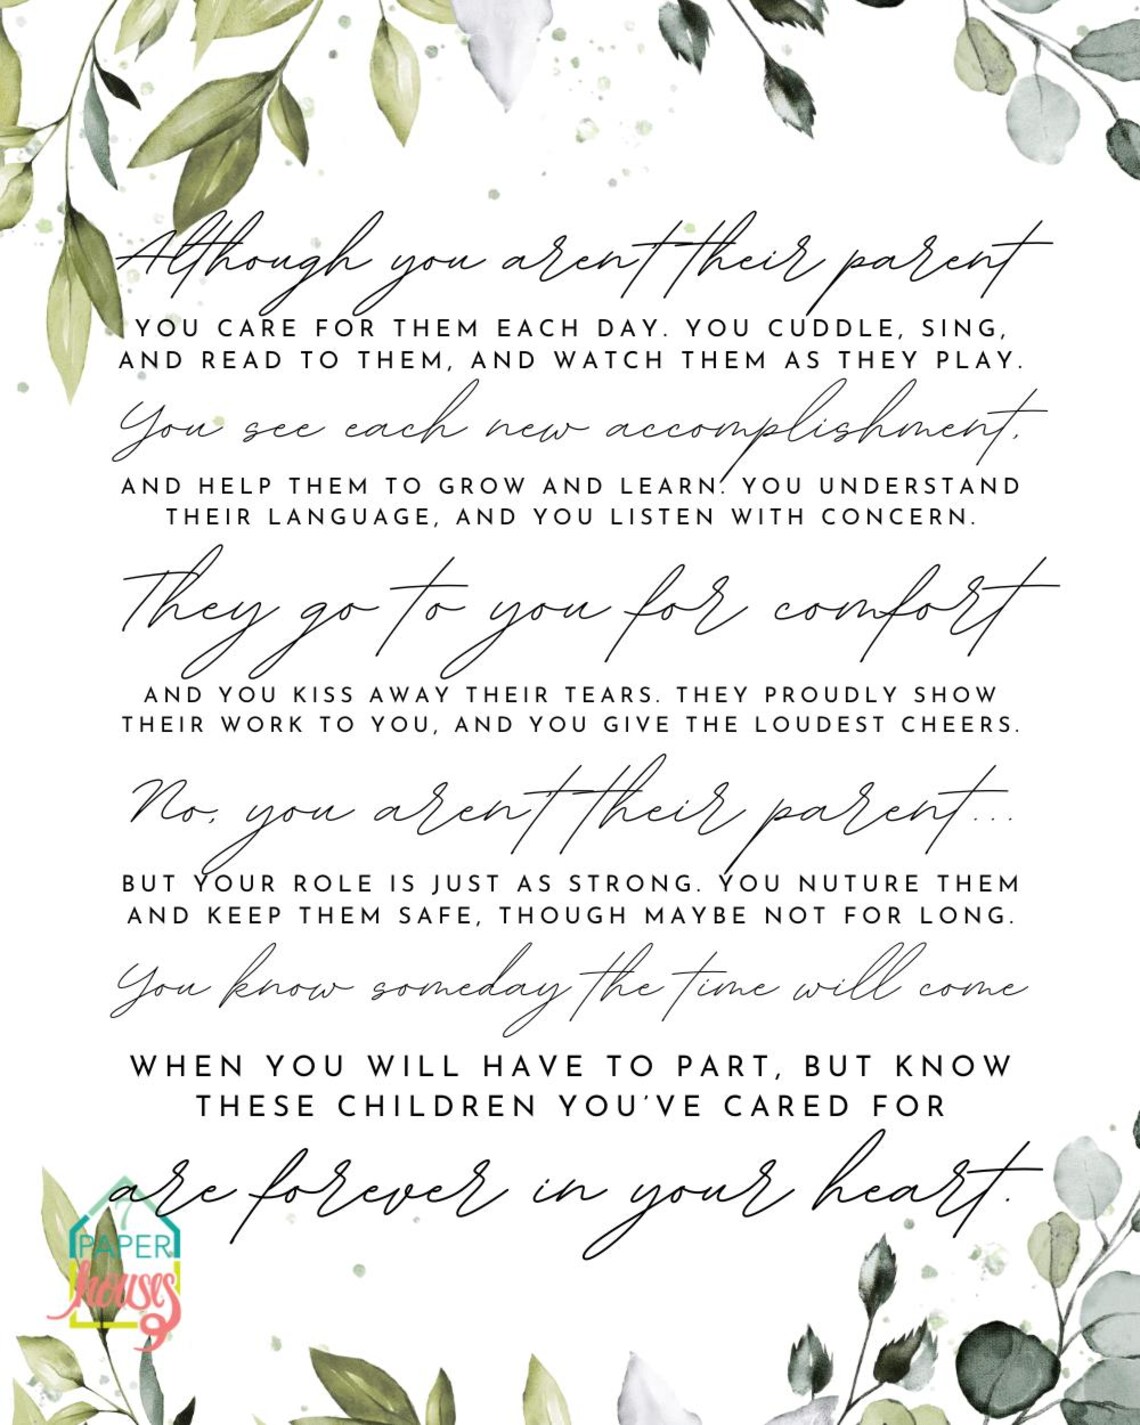 Although you aren't their parent
YOU CARE FOR THEM EACH DAY. YOU CUDDLE, SING,
AND READ TO THEM, AND WATCH THEM AS THEY PLAY.
You see each new accomplishment,
AND HELP THEM TO GROW AND LEARN. YOU UNDERSTAND
THEIR LANGUAGE, AND YOU LISTEN WITH CONCERN.
They go to you for comfort
AND YOU KISS AWAY THEIR TEARS. THEY PROUDLY SHOW
THEIR WORK TO YOU, AND YOU GIVE THE LOUDEST CHEERS.
No, you aren't their parent...
BUT YOUR ROLE IS JUST AS STRONG. YOU NUTURE THEM
AND KEEP THEM SAFE, THOUGH MAYBE NOT FOR LONG.
You know someday the time will come
WHEN YOU WILL HAVE TO PART, BUT KNOW
THESE CHILDREN YOU'VE CARED FOR
are forever in your heart.
7
PAPER
houses